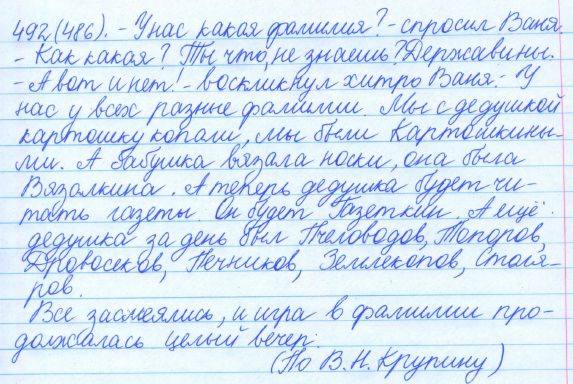 492(486). - У нас какая фамилия? - спросил Ваня.
- Как какая? Ты что, не знаешь? Державины.
- А вот и нет! - воскликнул хитро Ваня. - У
нас у всех разные фамилии. Мы с дедушкой
картошку копали, мы были Картошкины-
ми. А бабушка вязала носки, она была
Вязалкина. А теперь дедушка будет чи-
тать газеты. Он будет Газеткин. А ещё
дедушка за день был Пчеловодов, Топоров,
Дровосеков, Печников, Землекопов, Столя-
ров.
Все засмеялись, и игра в фамилии про-
должалась целый вечер.
(По В. Н. Крупину)